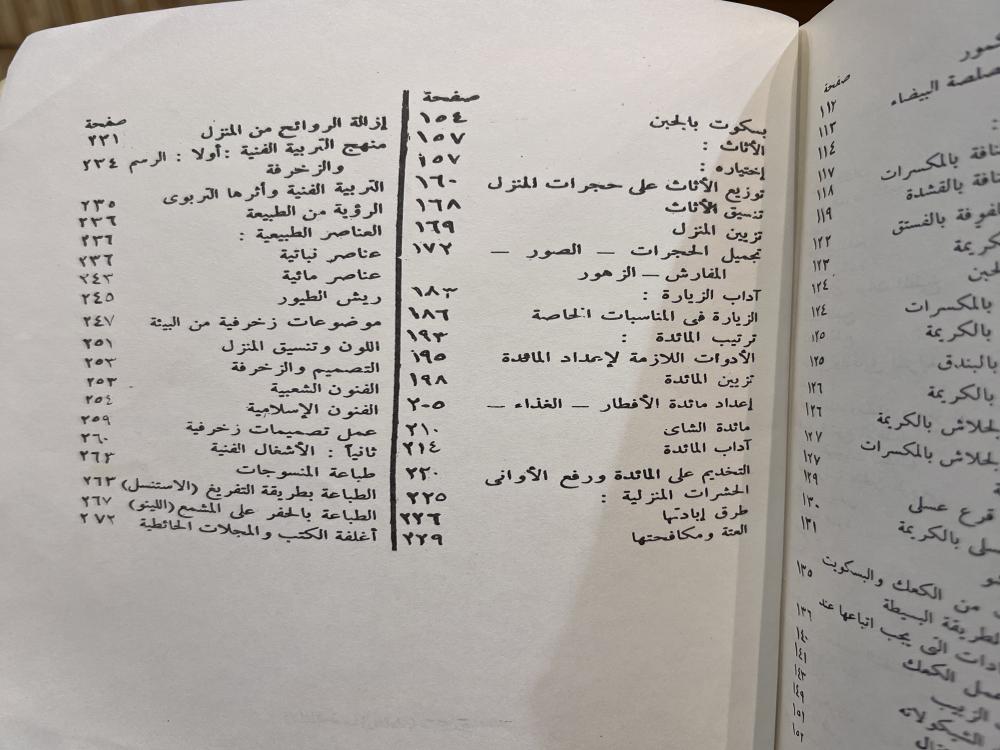 كمور
صلصة البيضاء
صفحة
١١٢
١١٣
١١٤
بالمكسرات ١١٧
بالقشدة ١١٨
بالفستق ١١٩
كريمة ١٢٢
١٢٣
بالمكسرات ١٢٤
بالكريمة ١٢٤
بالبندق ١٢٥
بالكريمة ١٢٥
١٢٦
بالكريمة ١٢٦
بالمكسرات ١٢٧
١٢٧
قرع عسلى ١٢٩
بالكريمة ١٣٠
١٣١
من الكعك والبسكويت
الطريقة البسيطة ١٣٥
التى يجب اتباعها عند ١٣٦
عمل الكعك ١٤٠
الزبيب ١٤١
الشيكولاته ١٤٣
١٤٩
١٥١
١٥٢
صفحة
بسكوت بالجبن ١٥٤
الأثاث : ١٥٧
إختياره : ١٥٧
توزيع الأثاث على حجرات المنزل ١٦٠
تنسيق الأثاث ١٦٨
تزيين المنزل ١٦٩
تجميل الحجرات — الصور — ١٧٢
المفارش — الزهور
آداب الزيارة : ١٨٣
الزيارة فى المناسبات الخاصة ١٨٦
ترتيب المائدة : ١٩٣
الأدوات اللازمة لإعداد المائدة ١٩٥
تزيين المائدة ١٩٨
إعداد مائدة الأفطار — الغذاء — ٢٠٥
مائدة الشاى ٢١٠
آداب المائدة ٢١٤
التخديم على المائدة ورفع الأوانى ٢٢٠
الحشرات المنزلية : ٢٢٥
طرق إبادتها ٢٢٦
العتة ومكافحتها ٢٢٩
صفحة
إزالة الروائح من المنزل ٢٣١
منهج التربية الفنية : أولا : الرسم ٢٣٤
والزخرفة
التربية الفنية وأثرها التربوى ٢٣٥
الرؤية من الطبيعة ٢٣٦
العناصر الطبيعية : ٢٣٦
عناصر نباتية ٢٣٦
عناصر مائية ٢٤٣
ريش الطيور ٢٤٥
موضوعات زخرفية من البيئة ٢٤٧
اللون وتنسيق المنزل ٢٥١
التصميم والزخرفة ٢٥٣
الفنون الشعبية ٢٥٣
الفنون الإسلامية ٢٥٤
عمل تصميمات زخرفية ٢٥٩
ثانياً : الأشغال الفنية ٢٦٠
طباعة المنسوجات ٢٦٣
الطباعة بطريقة التفريغ (الاستنسل) ٢٦٣
الطباعة بالحفر على المشمع (اللينو) ٢٦٧
أغلفة الكتب والمجلات الحائطية ٢٧٢